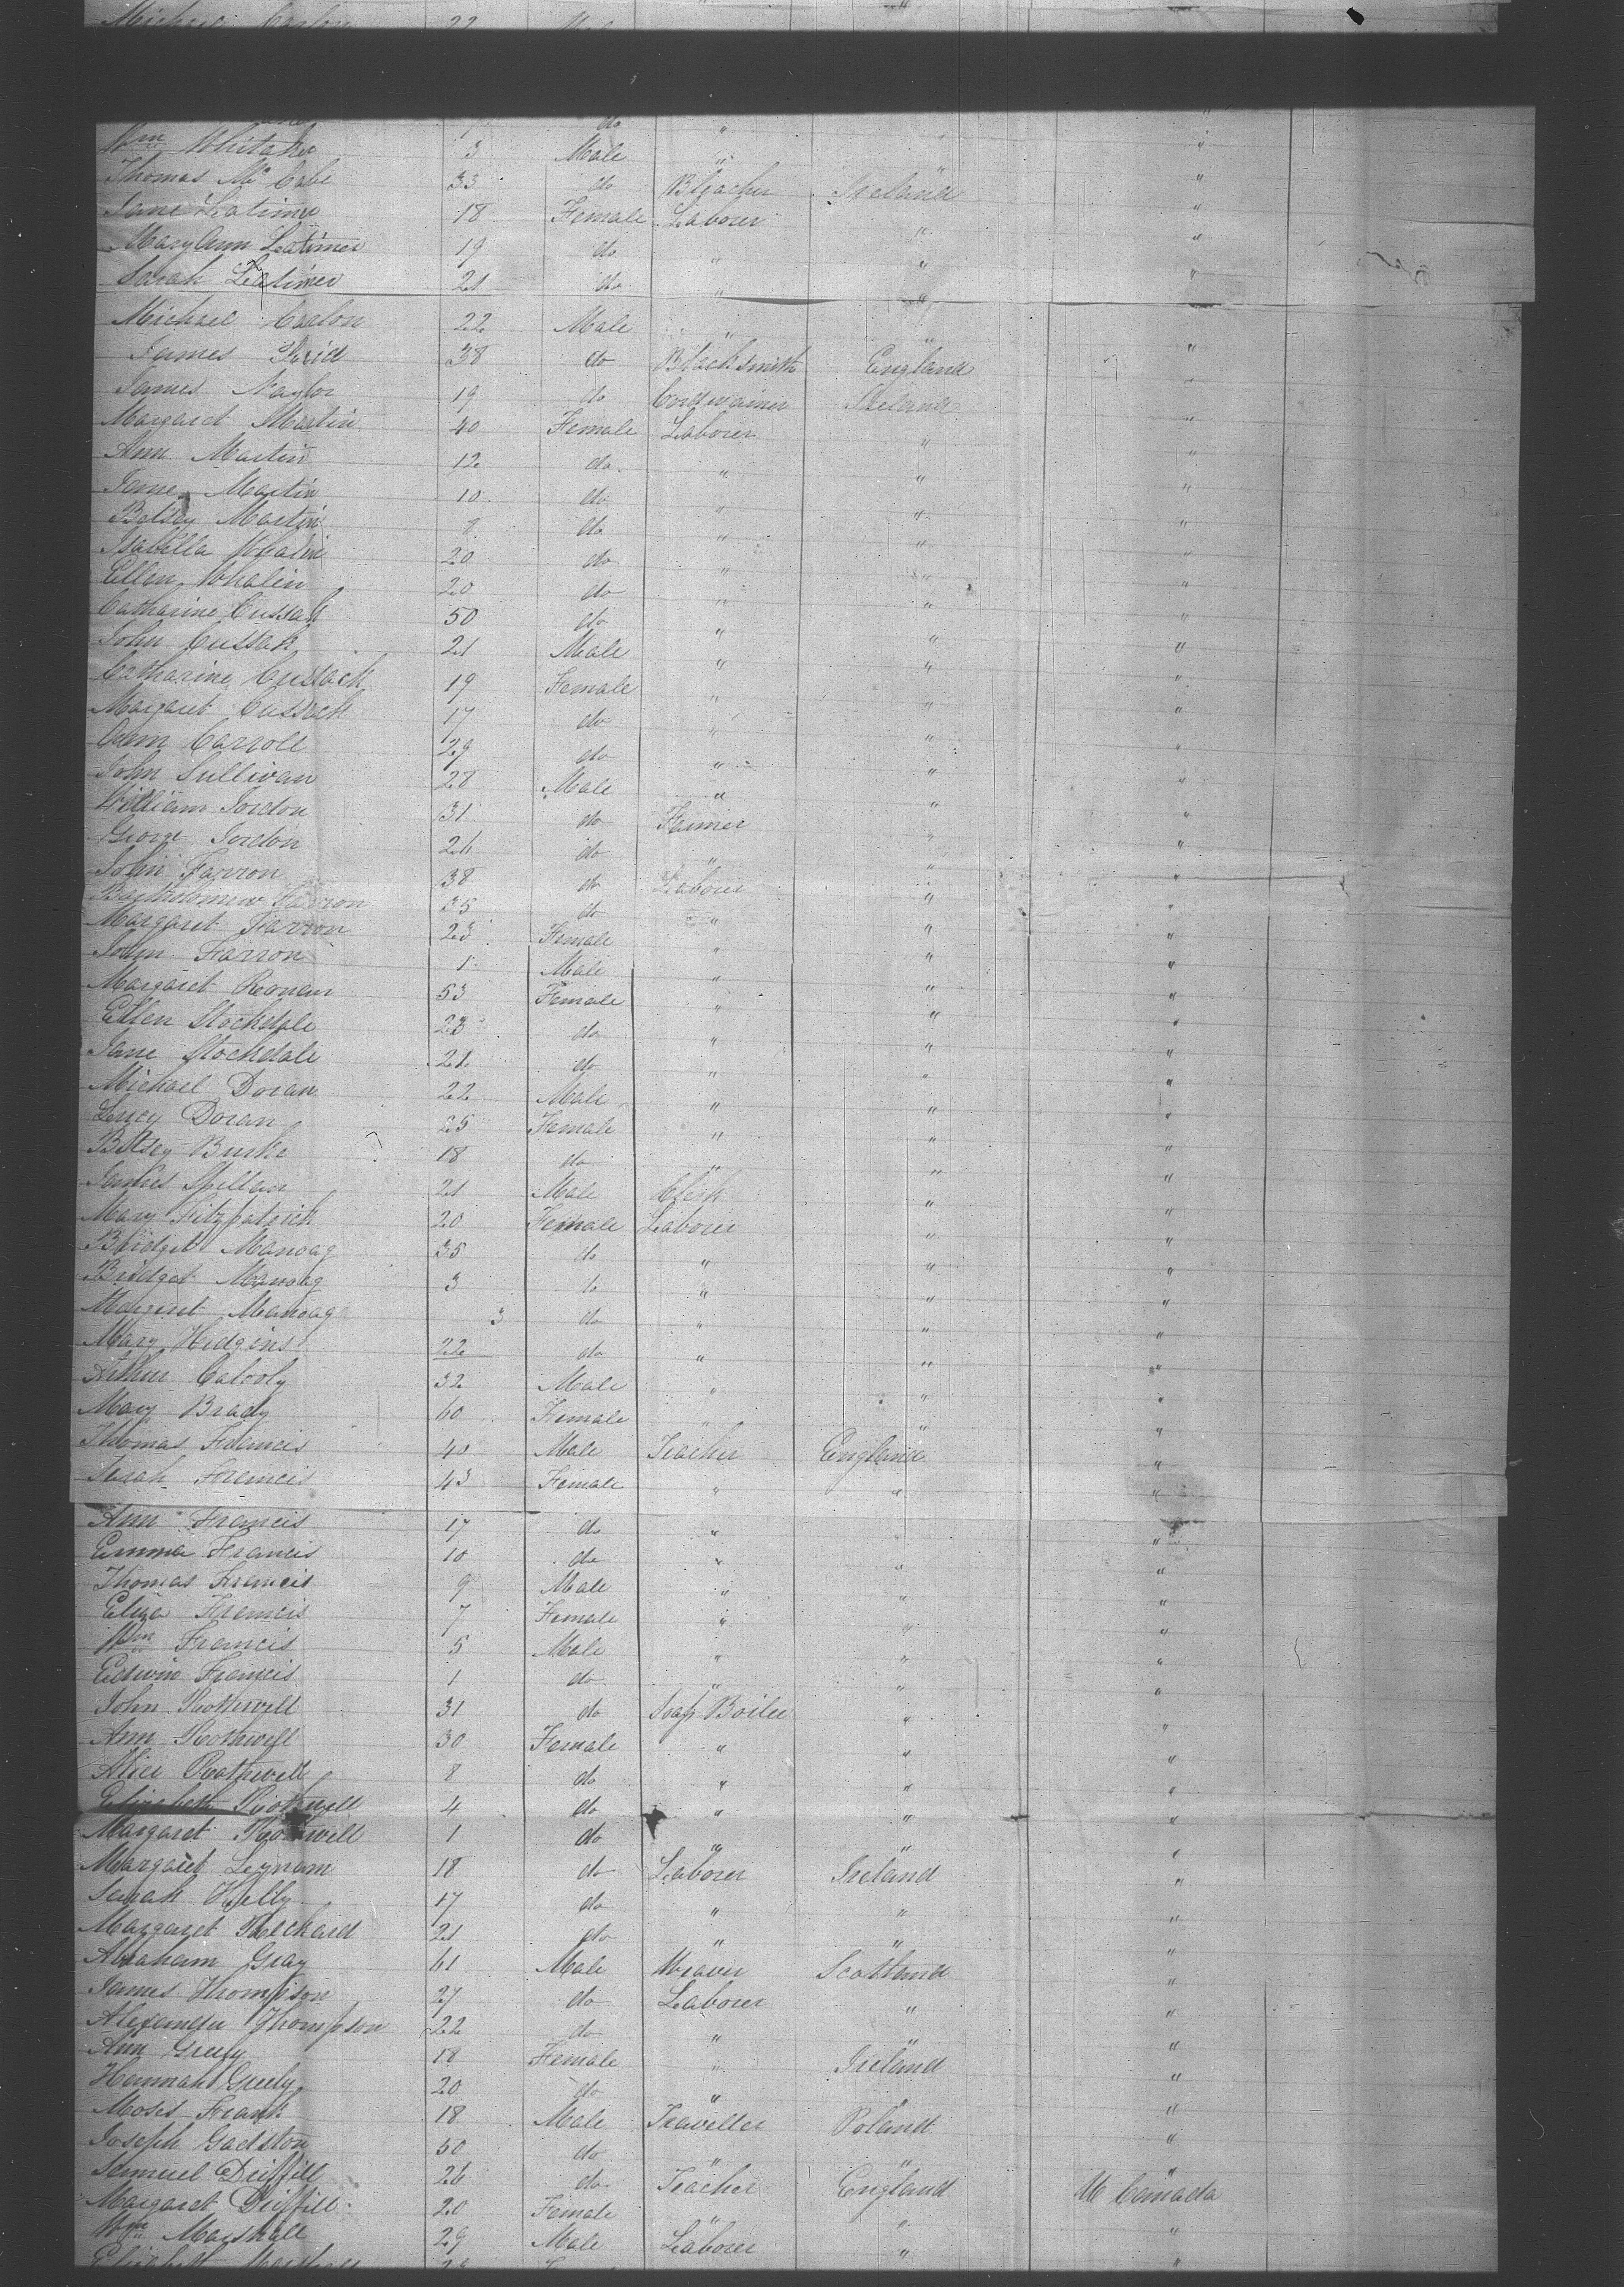 Michael Carlon 22 Male
7 do " "
Wm Whitaker 3 Male " " "
Thomas McCabe 33 do Bleacher Ireland "
Jane Latimer 18 Female Laborer " "
Mary Ann Latimer 19 do " " "
Sarah Latimer 21 do " " "
Michael Carlon 22 Male " "
James Reid 38 do Blacksmith England "
James Naylor 19 do Cordwainer Ireland "
Margaret Martin 40 Female Laborer " "
Ann Martin 12 do " " "
Jane Martin 10 do " " "
Betsey Martin 8 do " " "
Isabella Whalin 20 do " " "
Ellen Whalin 20 do " " "
Catharine Cussak 50 do " " "
John Cussak 21 Male " " "
Catharine Cussack 19 Female " " "
Margaret Cussack 17 do " " "
Ann Carroll 29 do " " "
John Sullivan 28 Male " " "
William Jordon 31 do Farmer " "
George Jordon 26 do " " "
John Farron 38 do Laborer " "
Bartholomew Farron 35 do " " "
Margaret Farron 23 Female " " "
John Farron 1 Male " " "
Margaret Ronan 53 Female " " "
Ellen Stockdale 23 do " " "
Jane Stockdale 21 do " " "
Michael Doran 22 Male " " "
Lucy Doran 25 Female " " "
Betsey Burke 18 do " " "
James Spillan 21 Male Clerk " "
Mary Fitzpatrick 20 Female Laborer " "
Bridget Manoag 35 do " " "
Bridget Manoag 3 do " " "
Margaret Manoag 3 do " " "
Mary Hidgins 22 do " " "
Arthur Calvoly 32 Male " " "
Mary Brady 60 Female " " "
Thomas Francis 40 Male Teacher England "
Sarah Francis 43 Female " " "
Ann Francis 17 do " " "
Emma Francis 10 do " " "
Thomas Francis 9 Male " " "
Eliza Francis 7 Female " " "
Wm Francis 5 Male " " "
Edwin Francis 1 do " " "
John Rothwell 31 do Soap Boiler " "
Ann Rothwell 30 Female " " "
Alice Rothwell 8 do " " "
Elizabeth Rothwell 4 do " " "
Margaret Rothwell 1 do " " "
Margaret Lynam 18 do Laborer Ireland "
Sarah Kelly 17 do " " "
Margaret Richard 21 do " " "
Abraham Gray 61 Male Weaver Scotland "
James Thompson 27 do Laborer " "
Alexander Thompson 22 do " " "
Ann Greely 18 Female " Ireland "
Hannah Greely 20 do " " "
Moses Frank 18 Male Traveller Poland "
Joseph Gadston 50 do " " "
Samuel Duffill 26 do Teacher England U Canada
Margaret Duffill 20 Female " " "
Wm Marshall 29 Male Laborer " "
Elizabeth Marshall